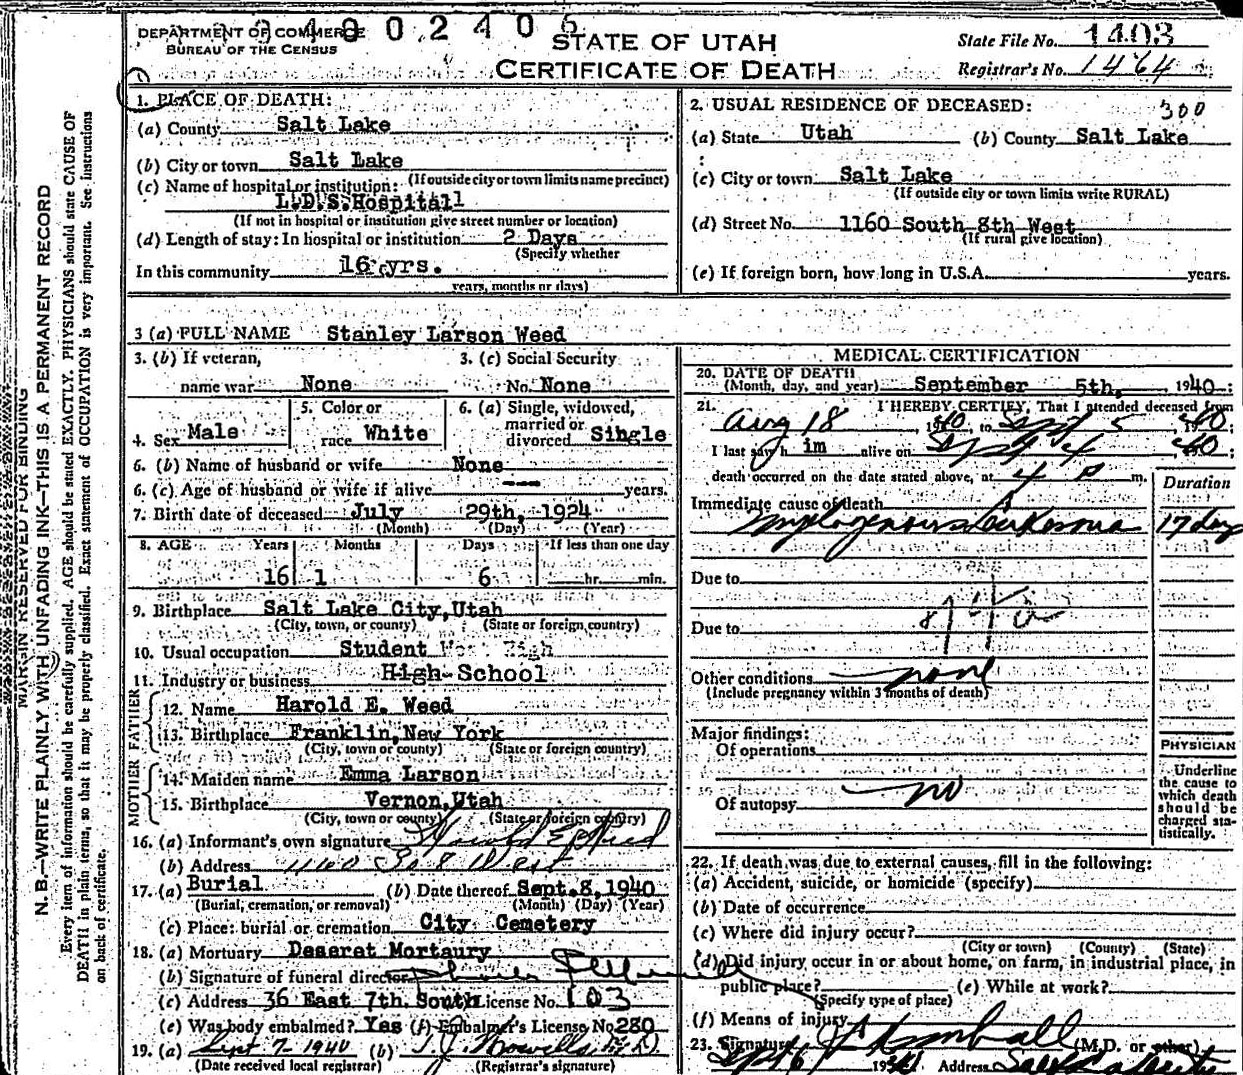 DEPARTMENT OF COMMERCE
BUREAU OF THE CENSUS
0 2 4 0
STATE OF UTAH
CERTIFICATE OF DEATH
State File No. 1403
Registrar's No. 1464
1. PLACE OF DEATH:
(a) County Salt Lake
(b) City or town Salt Lake
(If outside city or town limits name precinct)
(c) Name of hospital or institution:
L.D.S. Hospital
(If not in hospital or institution give street number or location)
(d) Length of stay: In hospital or institution 2 Days
(Specify whether
In this community 16 yrs.
years, months or days)
2. USUAL RESIDENCE OF DECEASED: 300
(a) State Utah (b) County Salt Lake
(c) City or town Salt Lake
(If outside city or town limits write RURAL)
(d) Street No. 1160 South 8th West
(If rural give location)
(e) If foreign born, how long in U.S.A. years.
3 (a) FULL NAME Stanley Larson Weed
3. (b) If veteran,
name war None
3. (c) Social Security
No. None
4. Sex Male
5. Color or
race White
6. (a) Single, widowed,
married or
divorced Single
6. (b) Name of husband or wife None
6. (c) Age of husband or wife if alive --- years.
7. Birth date of deceased July 29th, 1924
(Month) (Day) (Year)
8. AGE Years Months Days If less than one day
16 1 6 hr. min.
9. Birthplace Salt Lake City, Utah
(City, town, or county) (State or foreign country)
10. Usual occupation Student
11. Industry or business High School
FATHER
12. Name Harold E. Weed
13. Birthplace Franklin, New York
(City, town or county) (State or foreign country)
MOTHER
14. Maiden name Emma Larson
15. Birthplace Vernon, Utah
(City, town or county) (State or foreign country)
16. (a) Informant's own signature Harold E Weed
(b) Address 1160 So 8 West
17. (a) Burial (b) Date thereof Sept. 8, 1940
(Burial, cremation, or removal) (Month) (Day) (Year)
(c) Place: burial or cremation City Cemetery
18. (a) Mortuary Deseret Mortaury
(b) Signature of funeral director
(c) Address 36 East 7th. South License No. 103
(e) Was body embalmed? Yes (f) Embalmer's License No. 280
19. (a) Sept 7 1940 (b) T.J. Howells, M.D.
(Date received local registrar) (Registrar's signature)
MEDICAL CERTIFICATION
20. DATE OF DEATH
(Month, day, and year) September 5th, 1940
21. I HEREBY CERTIFY, That I attended deceased from
Aug 18, 1940, to Sept 5, 1940;
I last saw h im alive on Sept 4 1940;
death occurred on the date stated above, at 4 P m.
Duration
Immediate cause of death
17 days
Due to
Due to
Other conditions none
(Include pregnancy within 3 months of death)
Major findings:
Of operations
Of autopsy no
PHYSICIAN
Underline
the cause to
which death
should be
charged sta-
tistically.
22. If death was due to external causes, fill in the following:
(a) Accident, suicide, or homicide (specify)
(b) Date of occurrence
(c) Where did injury occur?
(City or town) (County) (State)
(d) Did injury occur in or about home, on farm, in industrial place, in
public place? (e) While at work?
(Specify type of place)
(f) Means of injury
23. Signature Kimball (M.D. or other)
Sept 6 1940 Address
MARGIN RESERVED FOR BINDING
N. B.—WRITE PLAINLY WITH UNFADING INK—THIS IS A PERMANENT RECORD
Every item of information should be carefully supplied. AGE should be stated EXACTLY. PHYSICIANS should state CAUSE OF
DEATH in plain terms, so that it may be properly classified. Exact statement of OCCUPATION is very important. See instructions
on back of certificate.